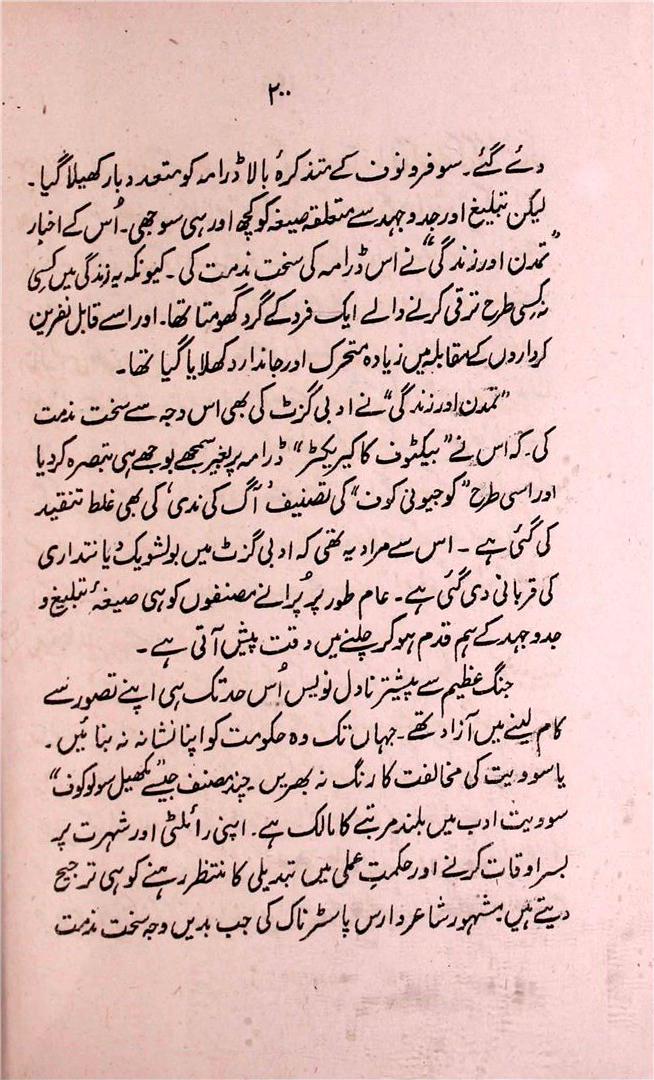 ۲۰۰
دئے گئے۔ سوفرونوف کے متذکرۂ بالا ڈرامہ کو متعدد بار کھیلا گیا۔
لیکن تبلیغ اور جدوجہد سے متعلقہ صیغہ کو کچھ اور ہی سوجھی۔ اُس کے اخبار
”تمدن اور زندگی“ نے اس ڈرامہ کی سخت مذمت کی۔ کیونکہ یہ زندگی میں کسی
نہ کسی طرح ترقی کرنے والے ایک فرد کے گرد گھومتا تھا۔ اور اسے قابل نفرین
کرداروں کے مقابلہ میں زیادہ متحرک اور جاندار دکھلایا گیا تھا۔
”تمدن اور زندگی“ نے ادبی گزٹ کی بھی اس وجہ سے سخت مذمت
کی۔ کہ اس نے ”بیکٹوف کا کیریکٹر“ ڈرامہ پر بغیر سمجھے بوجھے ہی تبصرہ کر دیا
اور اسی طرح ”کوجیونی کوف“ کی تصنیف ’آگ کی ندی‘ کی بھی غلط تنقید
کی گئی ہے۔ اس سے مراد یہ تھی کہ ادبی گزٹ میں بولشویک دیانتداری
کی قربانی دی گئی ہے۔ عام طور پر پُرانے مصنفوں کو ہی صیغۂ تبلیغ و
جدوجہد کے ہم قدم ہو کر چلنے میں دقت پیش آتی ہے۔
جنگ عظیم سے پیشتر ناول نویس اُس حد تک ہی اپنے تصور سے
کام لینے میں آزاد تھے۔ جہاں تک وہ حکومت کو اپنا نشانہ نہ بنائیں۔
یا سوویت کی مخالفت کا رنگ نہ بھریں۔ چند مصنف جیسے ”مکھیل سولوکوف“
سوویت ادب میں بلند مرتبے کا مالک ہے۔ اپنی رائلٹی اور شہرت پر
بسر اوقات کرنے اور حکمتِ عملی میں تبدیلی کا منتظر رہنے کو ہی ترجیح
دیتے ہیں۔ مشہور شاعر دارس پاسٹرناک کی جب بدیں وجہ سخت مذمت